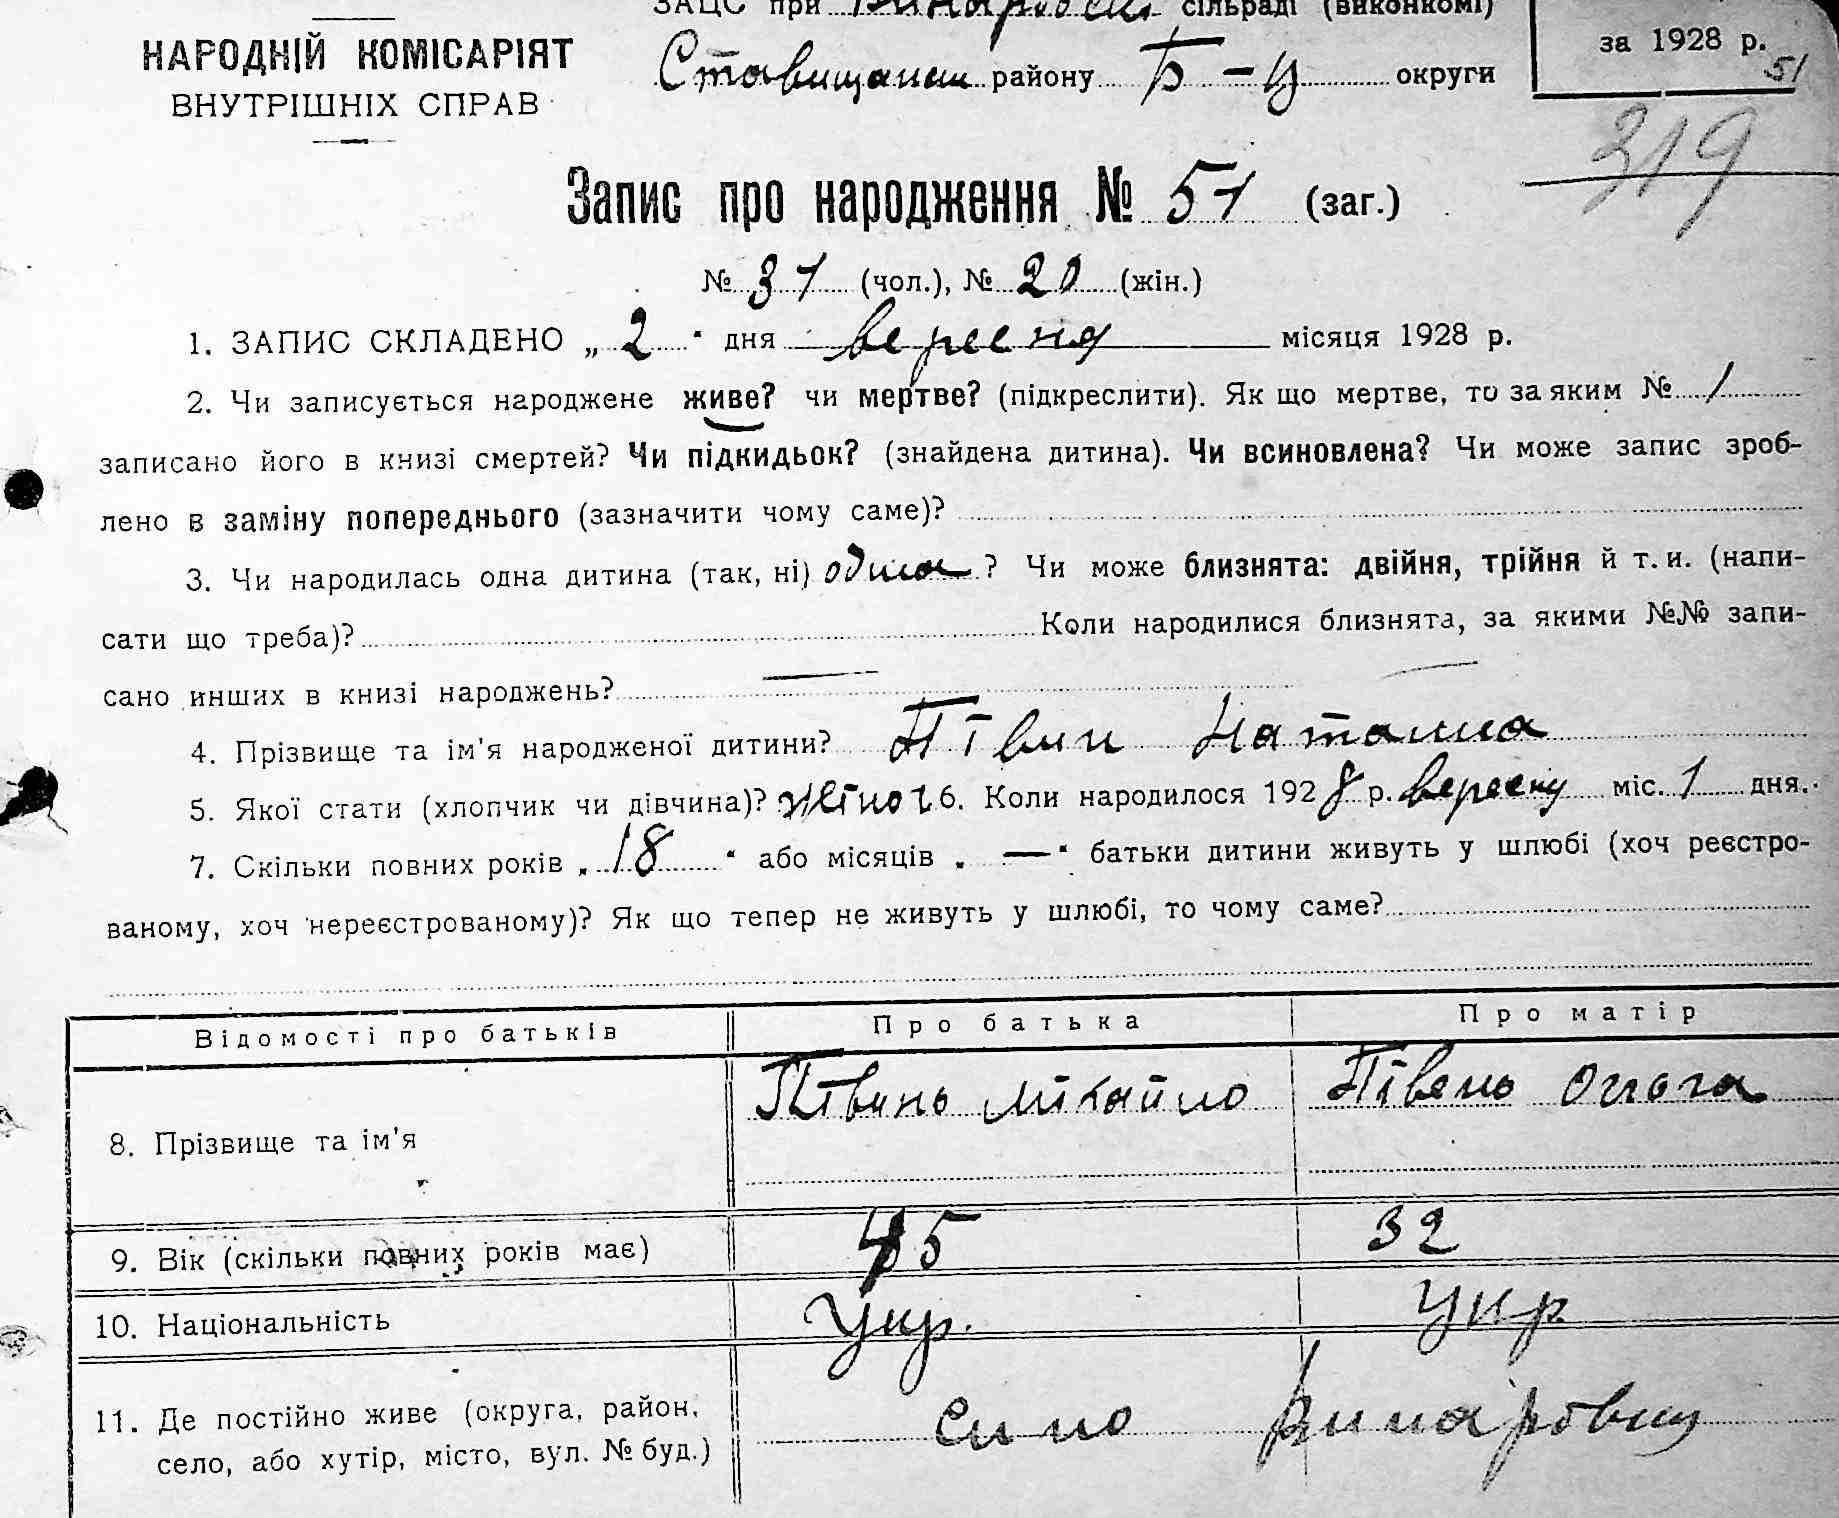 ЗАЦС при Винарівські сільраді (виконкомі)
НАРОДНІЙ КОМІСАРІЯТ
ВНУТРІШНІХ СПРАВ
Ставищанськ району Б-Ц округи
за 1928 р.
51
319
Запис про народження № 51 (заг.)
№ 31 (чол.), № 20 (жін.)
1. ЗАПИС СКЛАДЕНО „ 2 “ дня вересня місяця 1928 р.
2. Чи записується народжене живе? чи мертве? (підкреслити). Як що мертве, то за яким № /
записано його в книзі смертей? Чи підкидьок? (знайдена дитина). Чи всиновлена? Чи може запис зроб-
лено в заміну попереднього (зазначити чому саме)?
3. Чи народилась одна дитина (так, ні) одна ? Чи може близнята: двійня, трійня й т. и. (напи-
сати що треба)? Коли народилися близнята, за якими №№ запи-
сано инших в книзі народжень? —
4. Прізвище та ім’я народженої дитини? Півин Наталка
5. Якої стати (хлопчик чи дівчина)? жіноч 6. Коли народилося 1928 р. вересня міс. 1 дня.
7. Скільки повних років „ 18 “ або місяців „ — “ батьки дитини живуть у шлюбі (хоч реєстро-
ваному, хоч нереєстрованому)? Як що тепер не живуть у шлюбі, то чому саме?
Відомості про батьків Про батька Про матір
8. Прізвище та ім’я Півинь Михайло Півень Ольга
9. Вік (скільки повних років має) 45 32
10. Національність Укр. Укр
11. Де постійно живе (округа, район, село, або хутір, місто, вул. № буд.) село Винарівку